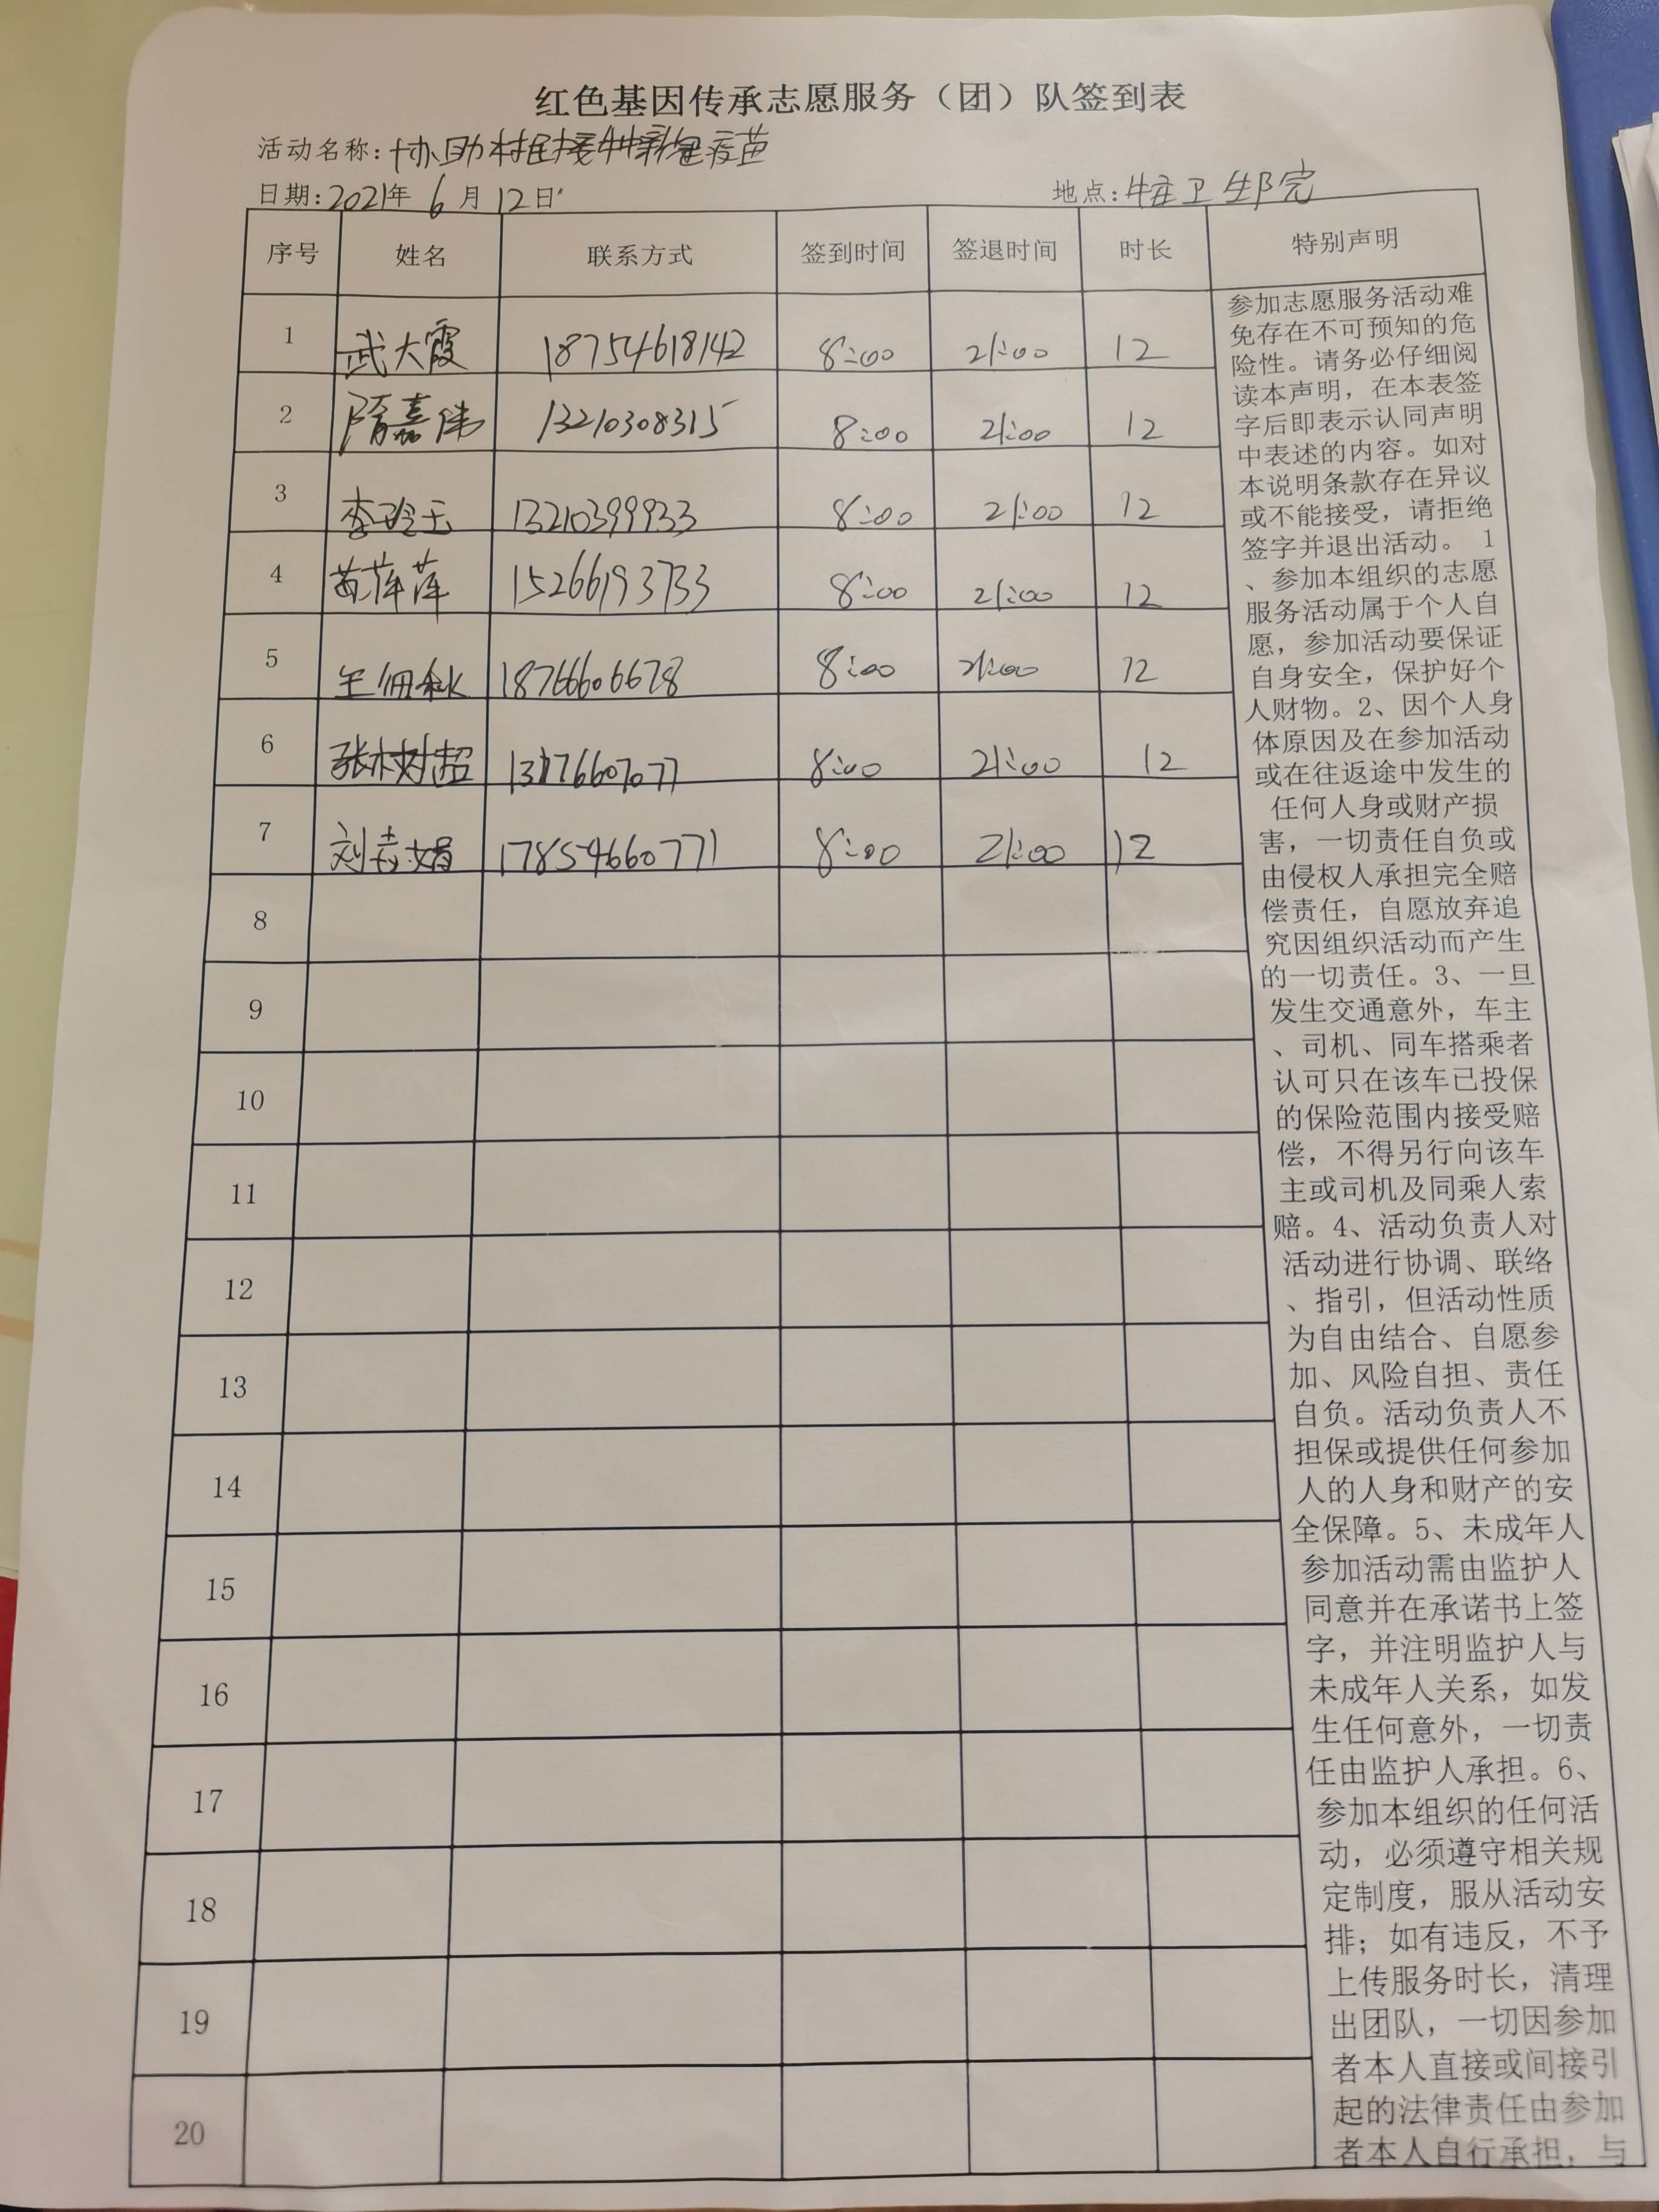 红色基因传承志愿服务（团）队签到表
活动名称:协助村民接种新冠疫苗
日期:2021年 6 月 12日 地点:牛庄卫生院
序号 姓名 联系方式 签到时间 签退时间 时长 特别声明
1 武大霞 18754618142 8:00 21:00 12
2 隋嘉伟 13210308315 8:00 21:00 12
3 李玲玉 13210399933 8:00 21:00 12
4 黄萍萍 15266193733 8:00 21:00 12
5 王佃秋 18766606678 8:00 21:00 12
6 张树超 8:00 21:00 12
7 刘志娟 17854660771 8:00 21:00 12
8
9
10
11
12
13
14
15
16
17
18
19
20
参加志愿服务活动难
免存在不可预知的危
险性。请务必仔细阅
读本声明，在本表签
字后即表示认同声明
中表述的内容。如对
本说明条款存在异议
或不能接受，请拒绝
签字并退出活动。 1
、参加本组织的志愿
服务活动属于个人自
愿，参加活动要保证
自身安全，保护好个
人财物。2、因个人身
体原因及在参加活动
或在往返途中发生的
任何人身或财产损
害，一切责任自负或
由侵权人承担完全赔
偿责任，自愿放弃追
究因组织活动而产生
的一切责任。3、一旦
发生交通意外，车主
、司机、同车搭乘者
认可只在该车已投保
的保险范围内接受赔
偿，不得另行向该车
主或司机及同乘人索
赔。4、活动负责人对
活动进行协调、联络
、指引，但活动性质
为自由结合、自愿参
加、风险自担、责任
自负。活动负责人不
担保或提供任何参加
人的人身和财产的安
全保障。5、未成年人
参加活动需由监护人
同意并在承诺书上签
字，并注明监护人与
未成年人关系，如发
生任何意外，一切责
任由监护人承担。6、
参加本组织的任何活
动，必须遵守相关规
定制度，服从活动安
排；如有违反，不予
上传服务时长，清理
出团队，一切因参加
者本人直接或间接引
起的法律责任由参加
者本人自行承担，与